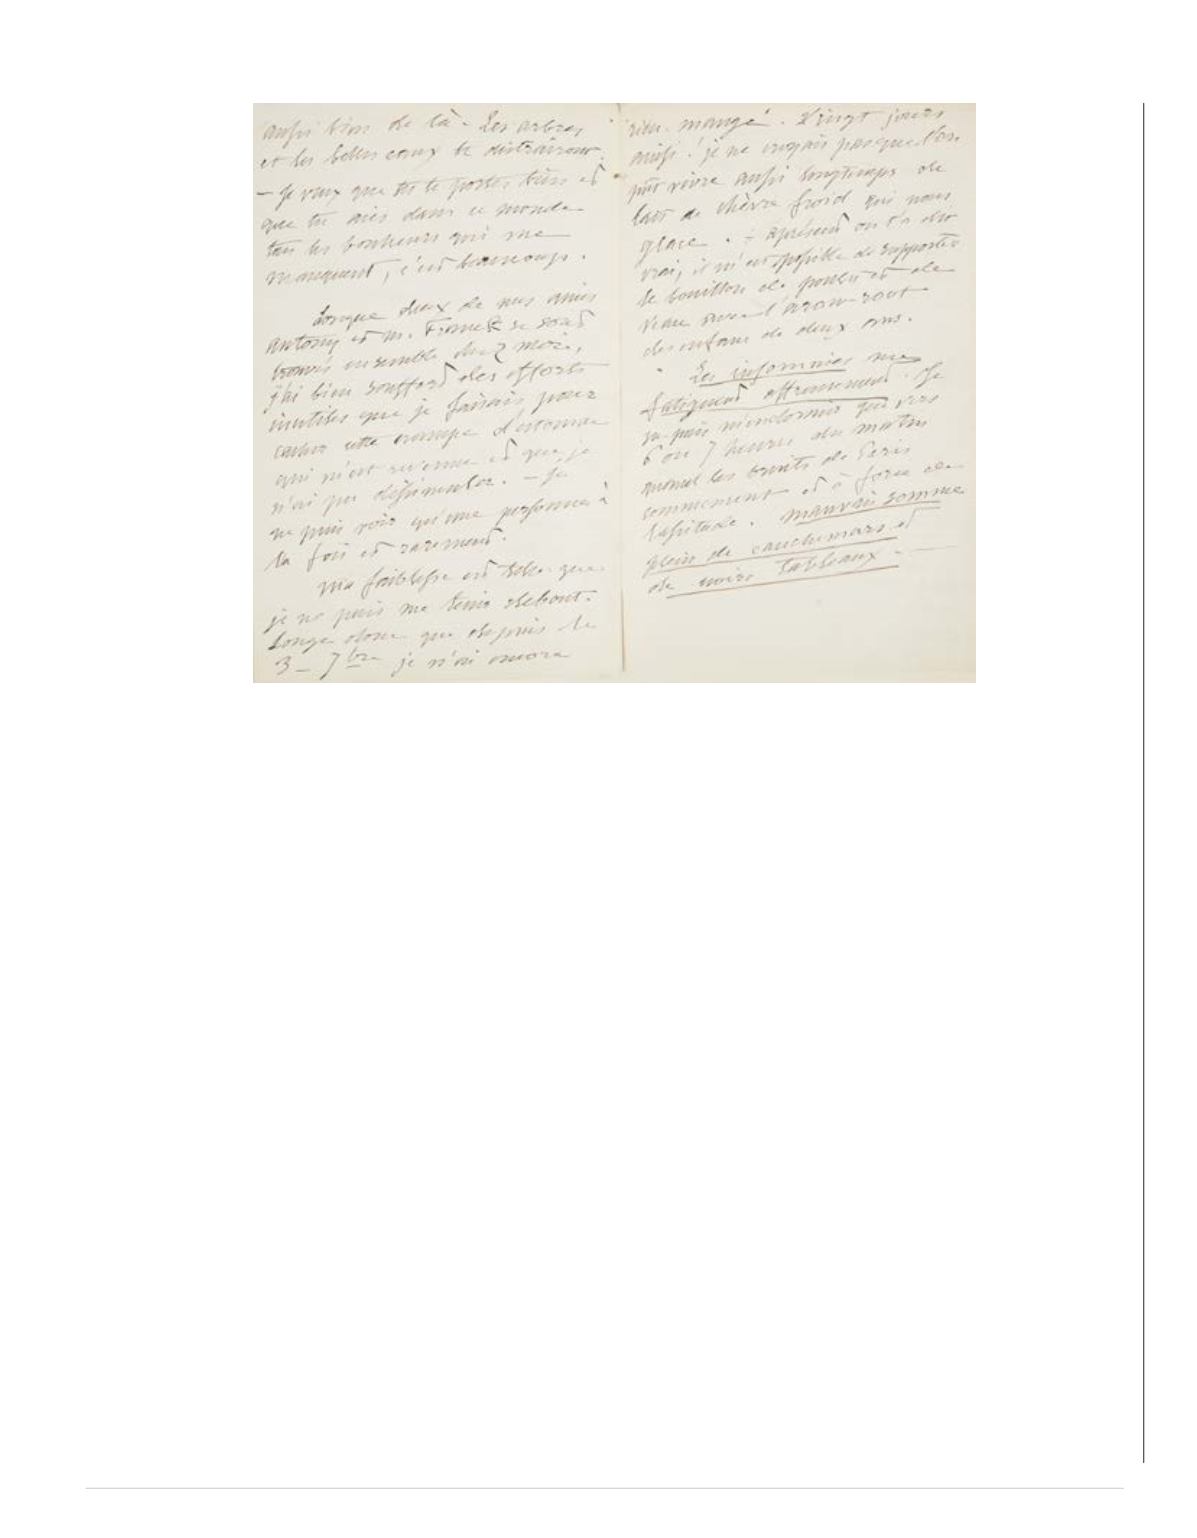 aussi bien de là. Les arbres
et les belles eaux te distrairont.
— Je veux que tu te portes bien et
que tu aies dans ce monde
tous les bonheurs qui me
manquent, c'est beaucoup.
Lorsque deux de nos amis
antony et M. se sont
trouvés ensemble chez moi,
j'ai bien souffert des efforts
inutiles que je faisais pour
cacher cette crampe d'estomac
qui m'est revenue et que je
n'ai pu dissimuler. — Je
ne puis voir qu'une personne à
la fois et rarement.
Ma faiblesse est telle que
je ne puis me tenir debout.
Songe donc que depuis le
3 — 7bre je n'ai encore
rien mangé. Vingt jours
ainsi! je ne croyais pas que l'on
pût vivre aussi longtemps de
lait de chèvre froid qui nous
glace. à présent on t'a dit
vrai, il m'est possible de supporter
le bouillon de poulet et de
veau avec l'arow-root
des enfans de deux ans.
Les insomnies me
fatiguent affreusement. Je
ne puis m'endormir que vers
6 ou 7 heures du matin
quand les bruits de Paris
commencent et à force de
lassitude. mauvais somme
plein de cauchemars et
de noirs tableaux. —